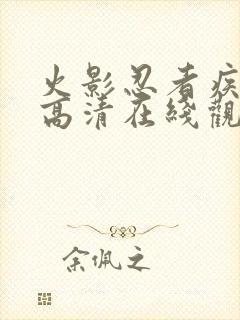 火影忍者疾
高清在綫觀
余佩之